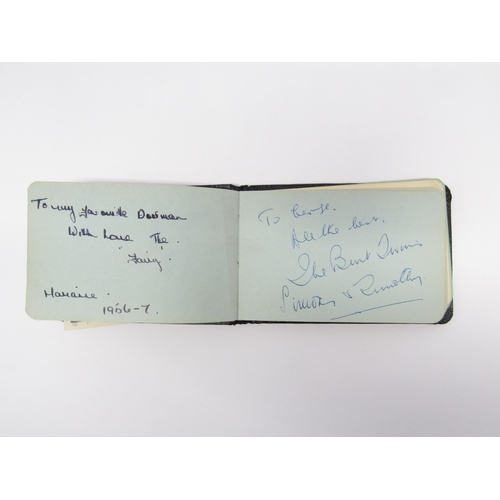 To my favourite Doorman
With Love The
Fairy.
1956-7.
To George.
All the best.
The Bent Twins
&